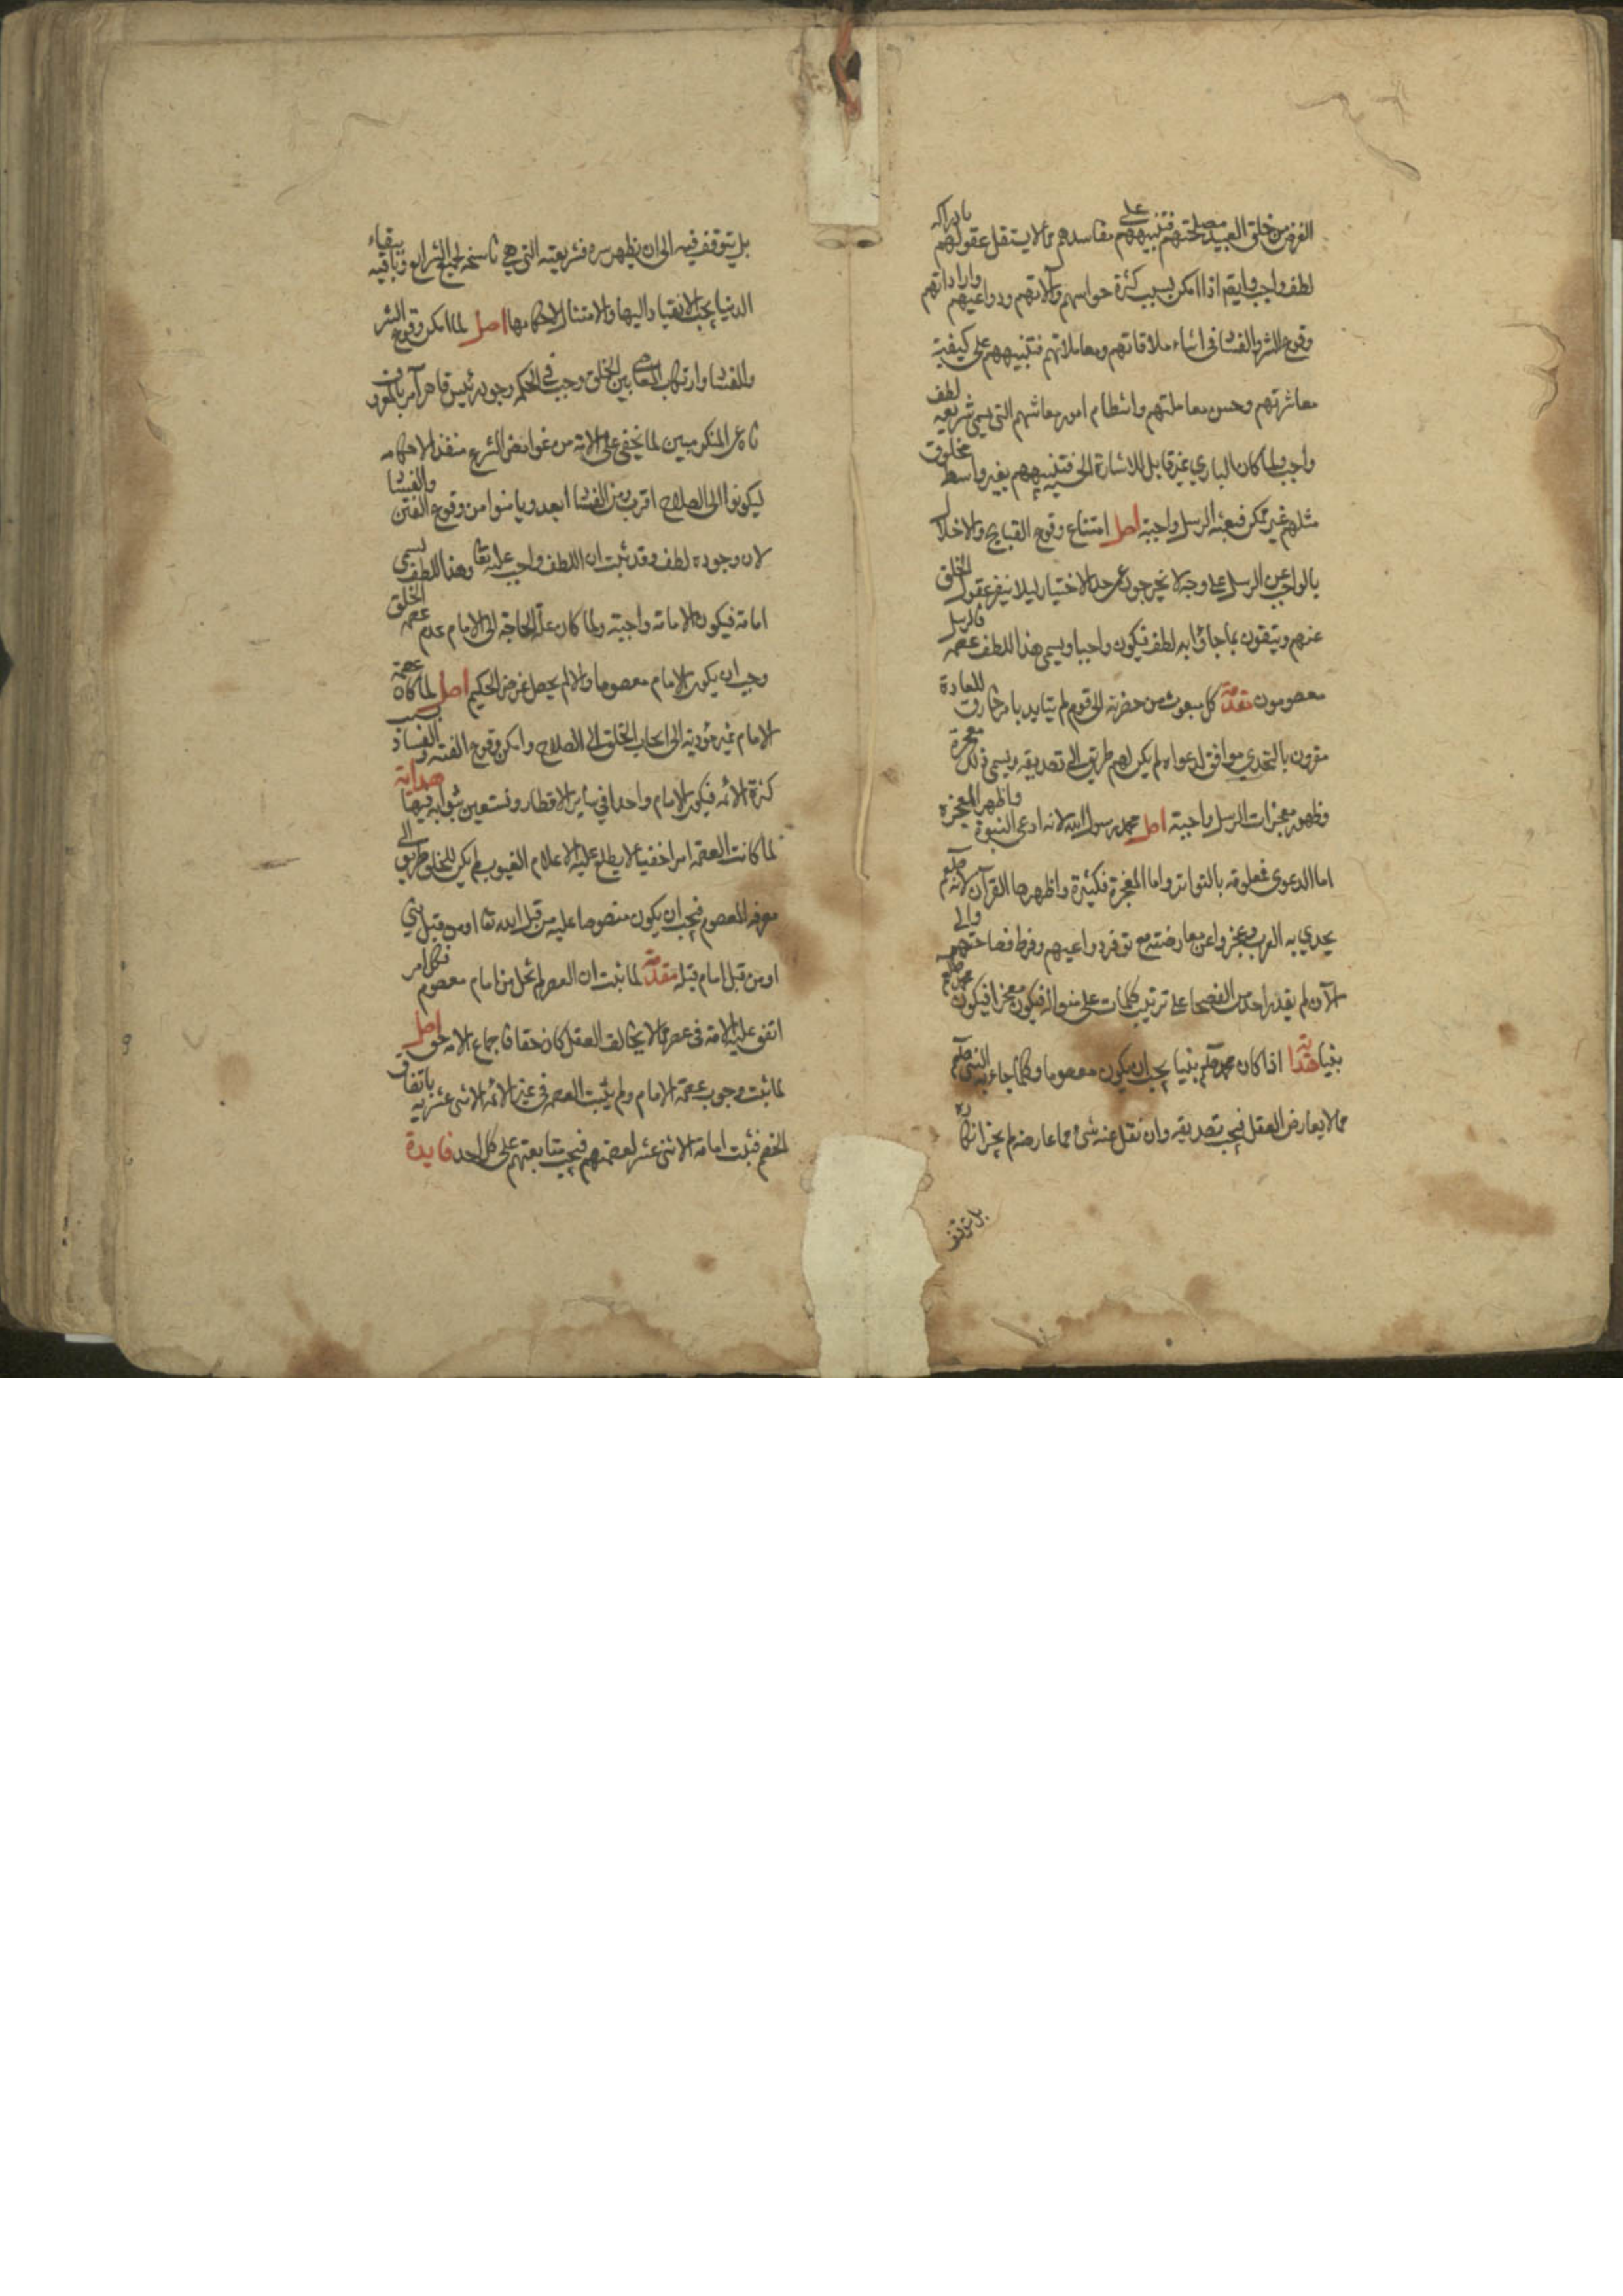 الغرض من خلق العبيد مصلحتهم فتنبيههم على مفاسدهم مما لا يستقل عقولهم بادراكه
لطف واجب وايضا اذا امكن بسبب كثرة حواسهم وآلاتهم ودواعيهم واراداتهم
وقوع الشر والفساد في اثناء ملاقاتهم ومعاملاتهم فتنبيههم على كيفية
معاشرتهم وحسن معاملتهم وانتظام امور معاشهم التي يسمى شريعة لطف
واجب ولما كان الباري غير قابل للاشارة الحسية فتنبيههم بغير واسطة مخلوق
مثلهم غير ممكن فبعثة الرسل واجبة اصل امتناع وقوع القبايح والاخلال
بالواجب عن الرسل على وجه لا يخرجون عن حد الاختيار ليلا ينفر عقول الخلق
عنهم ويثقون بما جاؤا به لطف فيكون واجبا ويسمى هذا اللطف عصمة فالرسل
معصومون مقدمة كل مبعوث من حضرته الى قوم لم يتايد بامر خارق للعادة
مقرون بالتحدي موافق لدعواه لم يكن لهم طريق الى تصديقه ويسمى ذلك معجزة
فظهور معجزات الرسل واجبة اصل محمد رسول الله لانه ادعى النبوة واظهر المعجزة
اما الدعوى فمعلومة بالتواتر واما المعجزة فكثيرة واظهرها القرآن لانه صلعم
تحدي به العرب وعجزوا عن معارضته مع توفر دواعيهم وفرط فصاحتهم والى
الآن لم يقدر احد من الفصحا على ترتيب كلمات على منواله فيكون معجزا فيكون محمد صلعم
نبيا هداية اذا كان محمد صلعم نبيا يجب ان يكون معصوما وكلما جاء به النبي صلعم
مما لا يعارض العقل فيجب تصديقه وان نقل عنه شئ مما عارضه لم يجز انكاره
بل يتوقف
بل يتوقف فيه الى ان يظهر سره فشريعته التي هي ناسخة لجميع الشرايع وباقية ببقاء
الدنيا يجب الانقياد اليها والامتثال لاحكامها اصل لما امكن وقوع الشر
والفساد وارتكاب المعاصي بين الخلق وجب في الحكمة وجود رئيس قاهر آمر بالمعروف
ناه عن المنكر مبين لما يخفى على الامة من غوامض الشرع منفذ لاحكامه
ليكونوا الى الصلاح اقرب ومن الفساد ابعد ويامنوا من وقوع الفتن والفساد
لان وجوده لطف وقد ثبت ان اللطف واجب عليه تعا وهذا اللطف يسمى
امامة فيكون الامامة واجبة ولما كان علة الحاجة الى الامام عدم عصمة الخلق
وجب ان يكون الامام معصوما والا لم يحصل غرض الحكيم اصل لما كان عصمة
الامام غير مؤدية الى الجاء الخلق الى الصلاح وامكن وقوع الفتنة والفساد بسبب
كثرة الائمة فيكون الامام واحدا في ساير الاقطار ونستعين بنوابه فيها هداية
لما كانت العصمة امرا خفيا لا يطلع عليه الا علام الغيوب لم يكن للخلق طريق الى
معرفة المعصوم فيجب ان يكون منصوصا عليه من قبل الله تعا او من قبل نبي
او من قبل امام قبله مقدمة لما ثبت ان العصر لم يخل من امام معصوم فكل امر
اتفق عليه الامة في عصر مما لا يخالف العقل كان حقا فاجماع الامة حق اصل
لما ثبت وجوب عصمة الامام ولم يثبت العصمة في غير الائمة الاثنى عشرية باتفاق
الخصم فثبت امامة الاثنى عشر لعصمتهم فيجب متابعتهم على كل احد فايدة